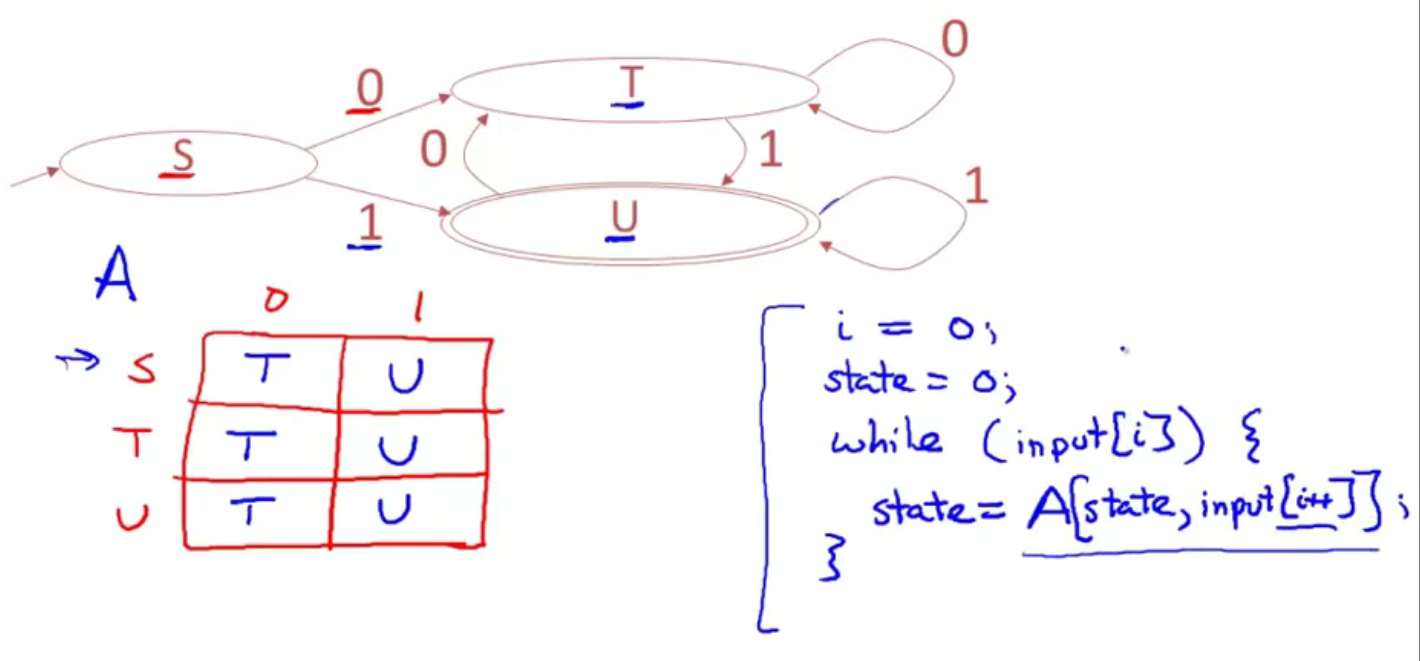 0
0
T
S
0
1
1
U
1
A
0 1
S T U
T T U
U T U
i = 0;
state = 0;
while (input[i]) {
state = A[state, input[i++]];
}